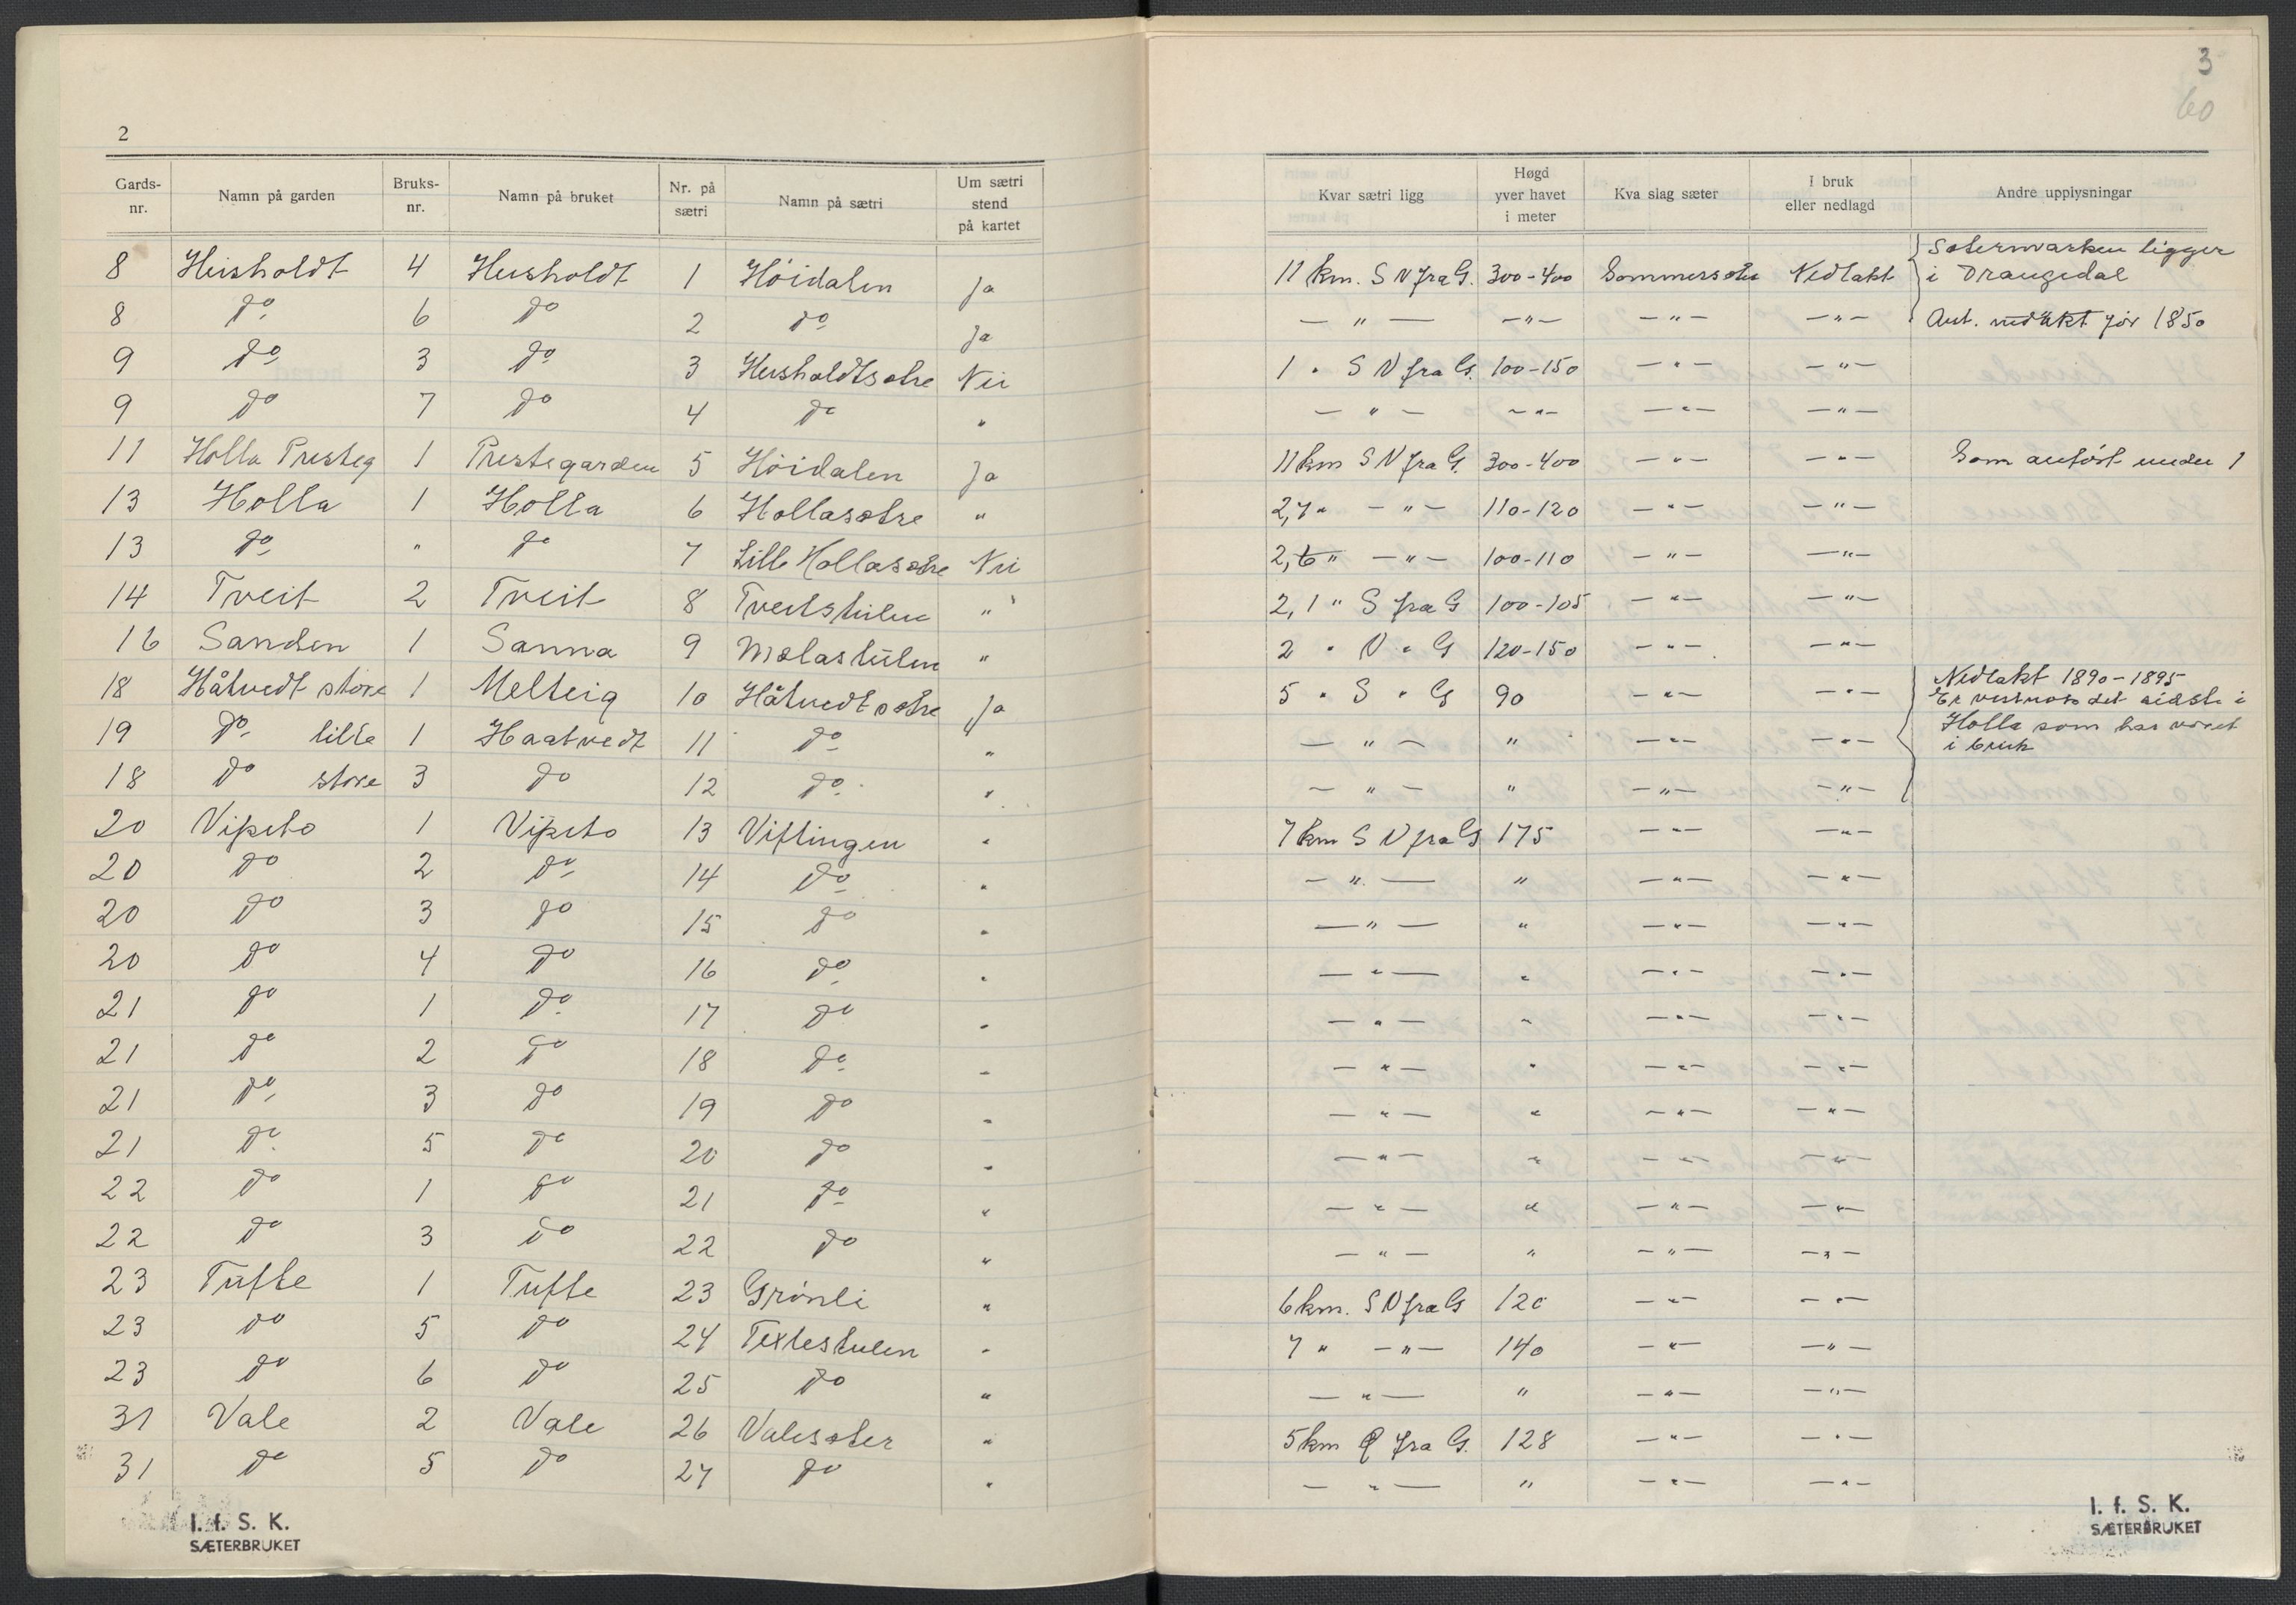 2
Gards-nr. | Namn på garden | Bruks-nr. | Namn på bruket | Nr. på sætri | Namn på sætri | Um sætri stend på kartet
8 Heisholdt 4 Heisholdt 1 Höidalen Ja
8 do 6 do 2 do Ja
9 do 3 do 3 Heisholdtsætre Nei
9 do 7 do 4 do "
11 Holla Presteg 1 Prestegarden 5 Höidalen Ja
13 Holla 1 Holla 6 Hollasætre "
13 do " do 7 Lille Hollasætre Nei
14 Tveit 2 Tveit 8 Tveitstulen "
16 Sanden 1 Sanna 9 Molastulen "
18 Håtvedt store 1 Melteig 10 Håtvedt sætre Ja
19 do lille 1 Haatvedt 11 do "
18 do store 3 do 12 do "
20 Vipeto 1 Vipeto 13 Viftingen "
20 do 2 do 14 do "
20 do 3 do 15 do "
20 do 4 do 16 do "
21 do 1 do 17 do "
21 do 2 do 18 do "
21 do 3 do 19 do "
21 do 5 do 20 do "
22 do 1 do 21 do "
22 do 3 do 22 do "
23 Tufte 1 Tufte 23 Grönli "
23 do 5 do 24 Textestulen "
23 do 6 do 25 do "
31 Vale 2 Vale 26 Valesæter "
31 do 5 do 27 do "
I. f. S. K.
SÆTERBRUKET
3
60
Kvar sætri ligg | Høgd yver havet i meter | Kva slag sæter | I bruk eller nedlagd | Andre upplysningar
11 km. S V fra G. 300-400 Sommersæter Nedlakt Sætermarken ligger
i Drangedal
— " — — " — — " — — " — Ant. nedlakt før 1850
1 " S V fra G. 100-150 — " — — " —
— " — — " — — " — — " —
11 km S V fra G. 300-400 — " — — " — Som anført under 1
2,7 " — " — 110-120 — " — — " —
2,6 " — " — 100-110 — " — — " —
2,1 " S fra G 100-105 — " — — " —
2 " V " G 120-150 — " — — " —
5 " S " G 90 — " — — " — Nedlakt 1890-1895
Er det sidste i
— " — " — " — — " — Holla som har været
i bruk
— " — " — " — — " —
7 km S V fra G 175 — " — — " —
— " — " — " — — " —
— " — " — " — — " —
— " — " — " — — " —
— " — " — " — — " —
— " — " — " — — " —
— " — " — " — — " —
— " — " — " — — " —
— " — " — " — — " —
— " — " — " — — " —
6 km. S V fra G 120 — " — — " —
7 " — " — 140 — " — — " —
— " — " — " — — " —
5 km fra G. 128 — " — — " —
— " — " — " — — " —
I. f. S. K.
SÆTERBRUKET